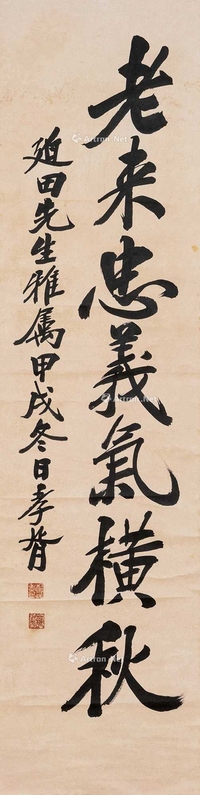 老来忠義氣橫秋
延田先生雅属甲戌冬日孝胥